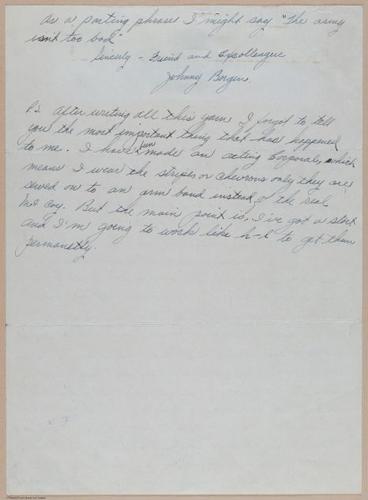 As a parting phrase I might say "The army
isn't too bad"
Sincerly - Friend and
Johnny Bergin
P.S. After writing all this yarn I forgot to tell
you the most important thing that has happened
to me. I have been made an acting Corporal, which
means I wear the stripes or chevrons only they are
sewed on to an arm band instead of the real
McCoy. But the main point is, I've got a start
and I'm going to work like h-l to get them
permanetly.